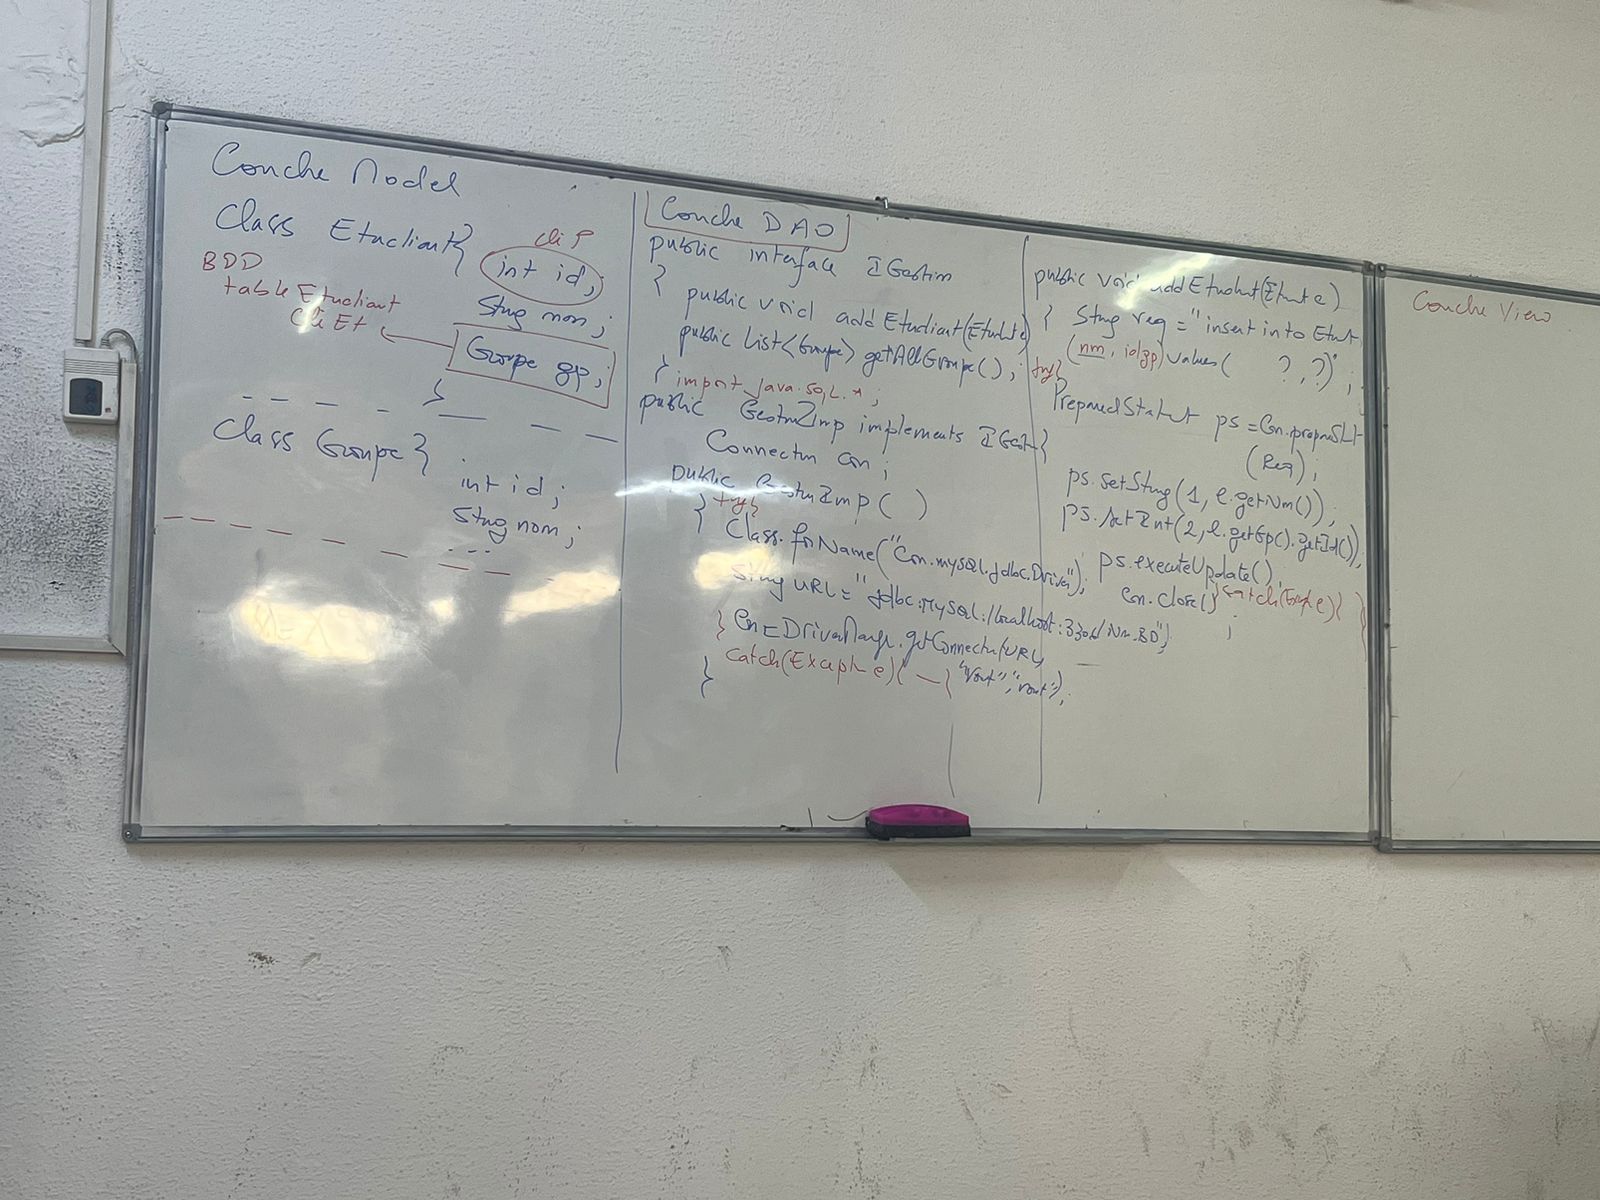 Couche Model
Class Etudiant{
clé P
int id;
String nom;
BDD
table Etudiant
Clé Et
Groupe gp;
}
Class Groupe{
int id;
String nom;
...
Couche DAO
public interface IGestion
{
public void addEtudiant(Etudiant e)
public List<Groupe> getAllGroupe();
}
import java.sql.*;
public GestionImp implements IGestion{
Connection con;
public GestionImp( )
{ try{
Class.forName("Com.mysql.jdbc.Driver");
String URL="jdbc:mysql://localhost:3306/Nm.BD";
} Con=DriverManager.getConnection(URL,
"root","root");
catch(Exception e){ — }
}
public void addEtudiant(Etudiant e)
{ String req="insert into Etudiant
(nom, idgp) values( ?,?)";
try{
PreparedStatement ps=Con.prepareStatement
(Req);
ps.setString(1, e.getNom());
ps.setInt(2, e.getGp().getId());
ps.executeUpdate();
Con.close();
} catch(Exception e){ }
}
Couche View